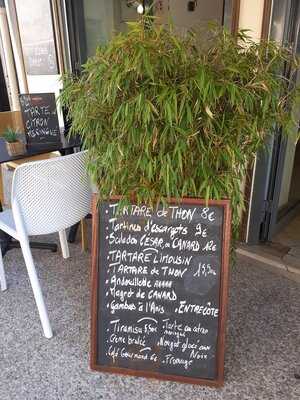 TARTE
CITRON
MERINGUÉE
- TARTARE de THON 8€
- Tartines d'escargots 9€
- Salades CESAR, ou CANARD 12€
- TARTARE Limousin
- TARTARE de THON 15,50€
- Andouillette AAAAA
- Magret de CANARD
- ENTRECÔTE
- Gambas à l'Anis
- Tiramisu 5,50€
- Tarte au citron
meringuée
- Crème brulée
- Nougat glacé aux
Noix
- Café Gourmand 6€
- Fromage